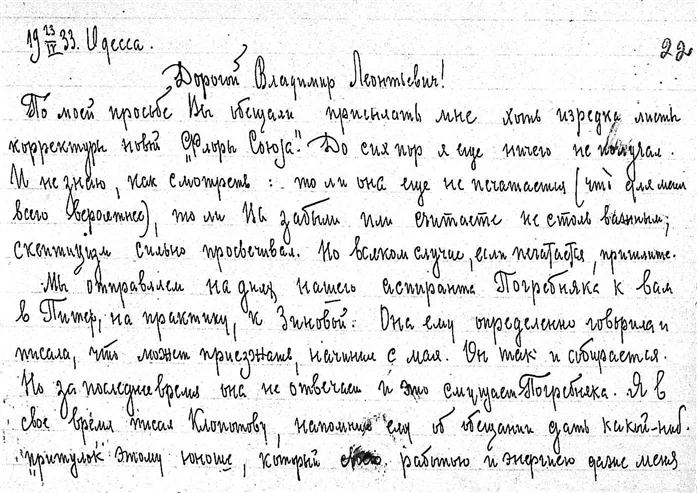 19 23/IV 33. Одесса. 22
Дорогой Владимир Леонтьевич!
По моей просьбе Вы обещали присылать мне хоть изредка листы
корректуры новой "Флоры Союза". До сих пор я еще ничего не получал.
И не знаю, как смотреть: то ли она еще не печатается (что для меня
всего вероятнее), то ли Вы забыли или считаете не столь важным;
скептицизм сильно просвечивал. Но всяком случае, если печатается, пришлите.
Мы отправляем на днях нашего аспиранта Погребняка к вам
в Питер, на практику, к Зиновой. Она ему определенно говорила и
писала, что может приезжать, начиная с мая. Он так и собирается.
Но за последнее время она не отвечает и это смущает Погребняка. Я в
свое время писал Клопотову, напомнив ему об обещании дать какой-ниб.
"притулок" этому юноше, который работою и энергиею даже меня